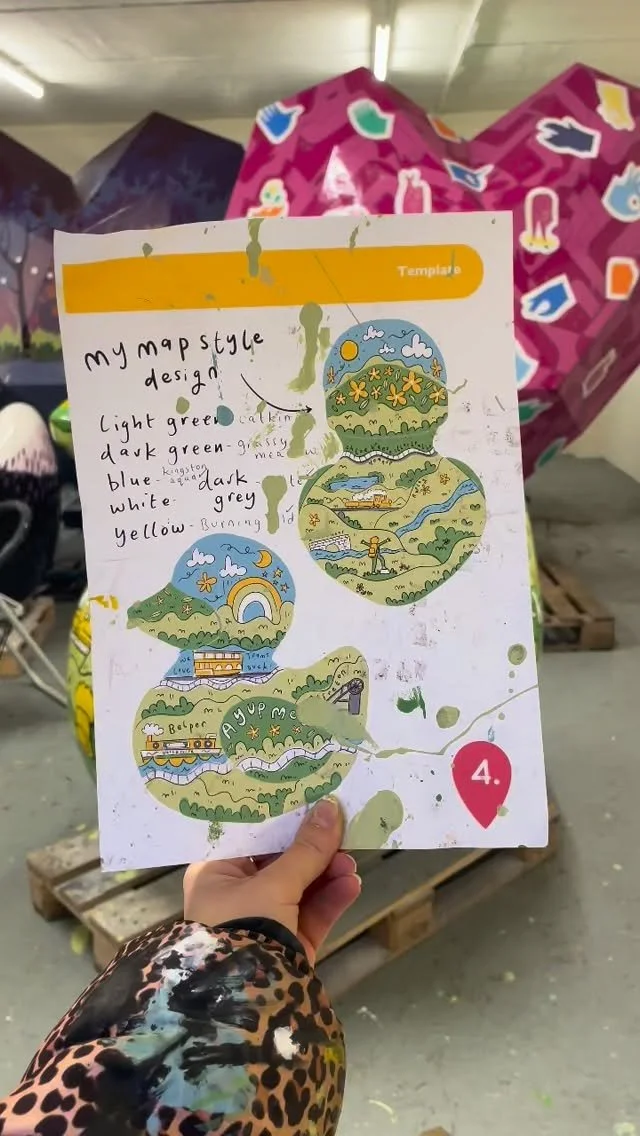 Template
my map style
design
light green catkin
dark green - grassy
blue - kingston dark
white - grey
yellow - Burning
We
love
Trams
Duck!
AY UP Me
Belper
4.